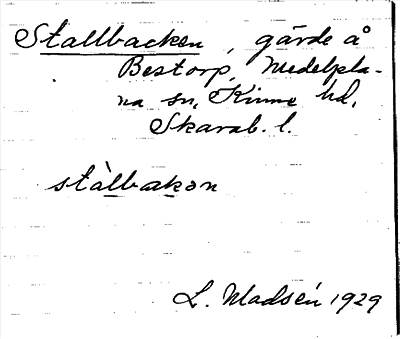 Stallbacken, gärde å
Bestorp, Medelpla-
na sn, Kinne hd,
Skarab. l.
stàlbakon
L. Madsén 1929